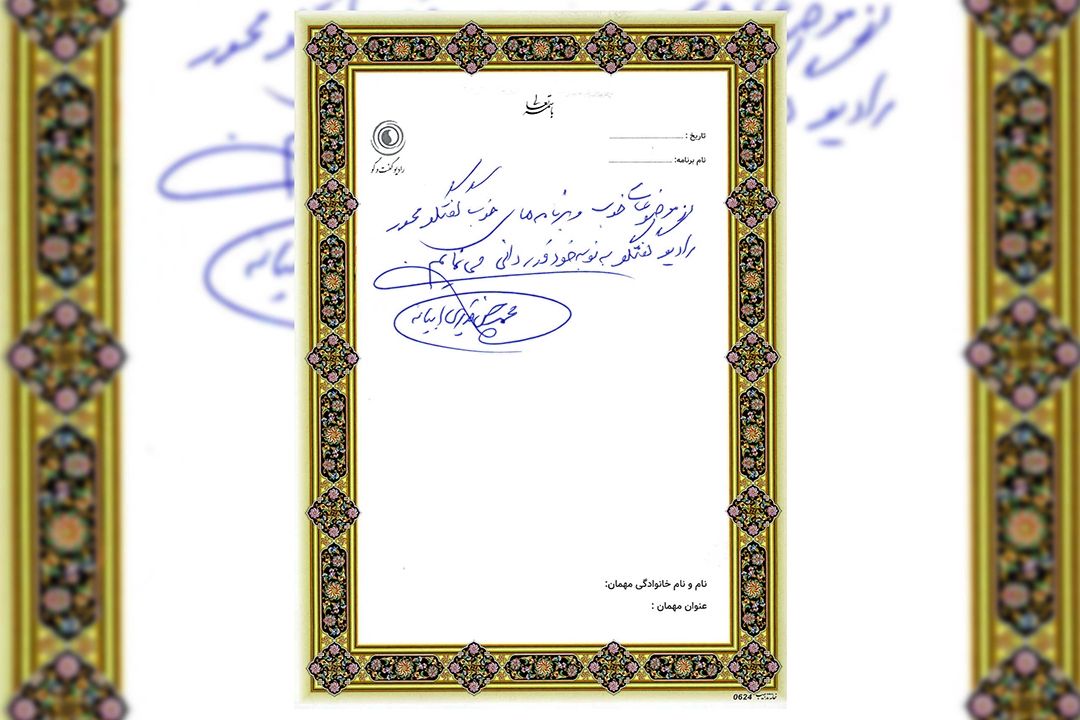 باسمه تعالی
تاریخ :
رادیو گفت و گو
نام برنامه:
از موضوعات خوب و برنامه های خوب گفتگو محور
رادیو گفتگو به نوبه خود قدردانی می نمایم
محمدحسن قدیری ابیانه
نام و نام خانوادگی مهمان:
عنوان مهمان :
0624